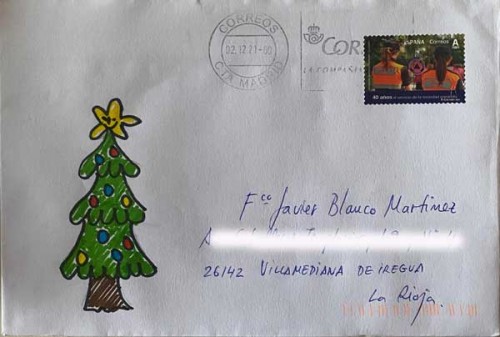 CORREOS
02.12.21-00
CTA MADRID
CORR
ESPAÑA Correos A
40 años
Fco Javier Blanco Martinez
26142 VILLAMEDIANA DE IREGUA
La Rioja